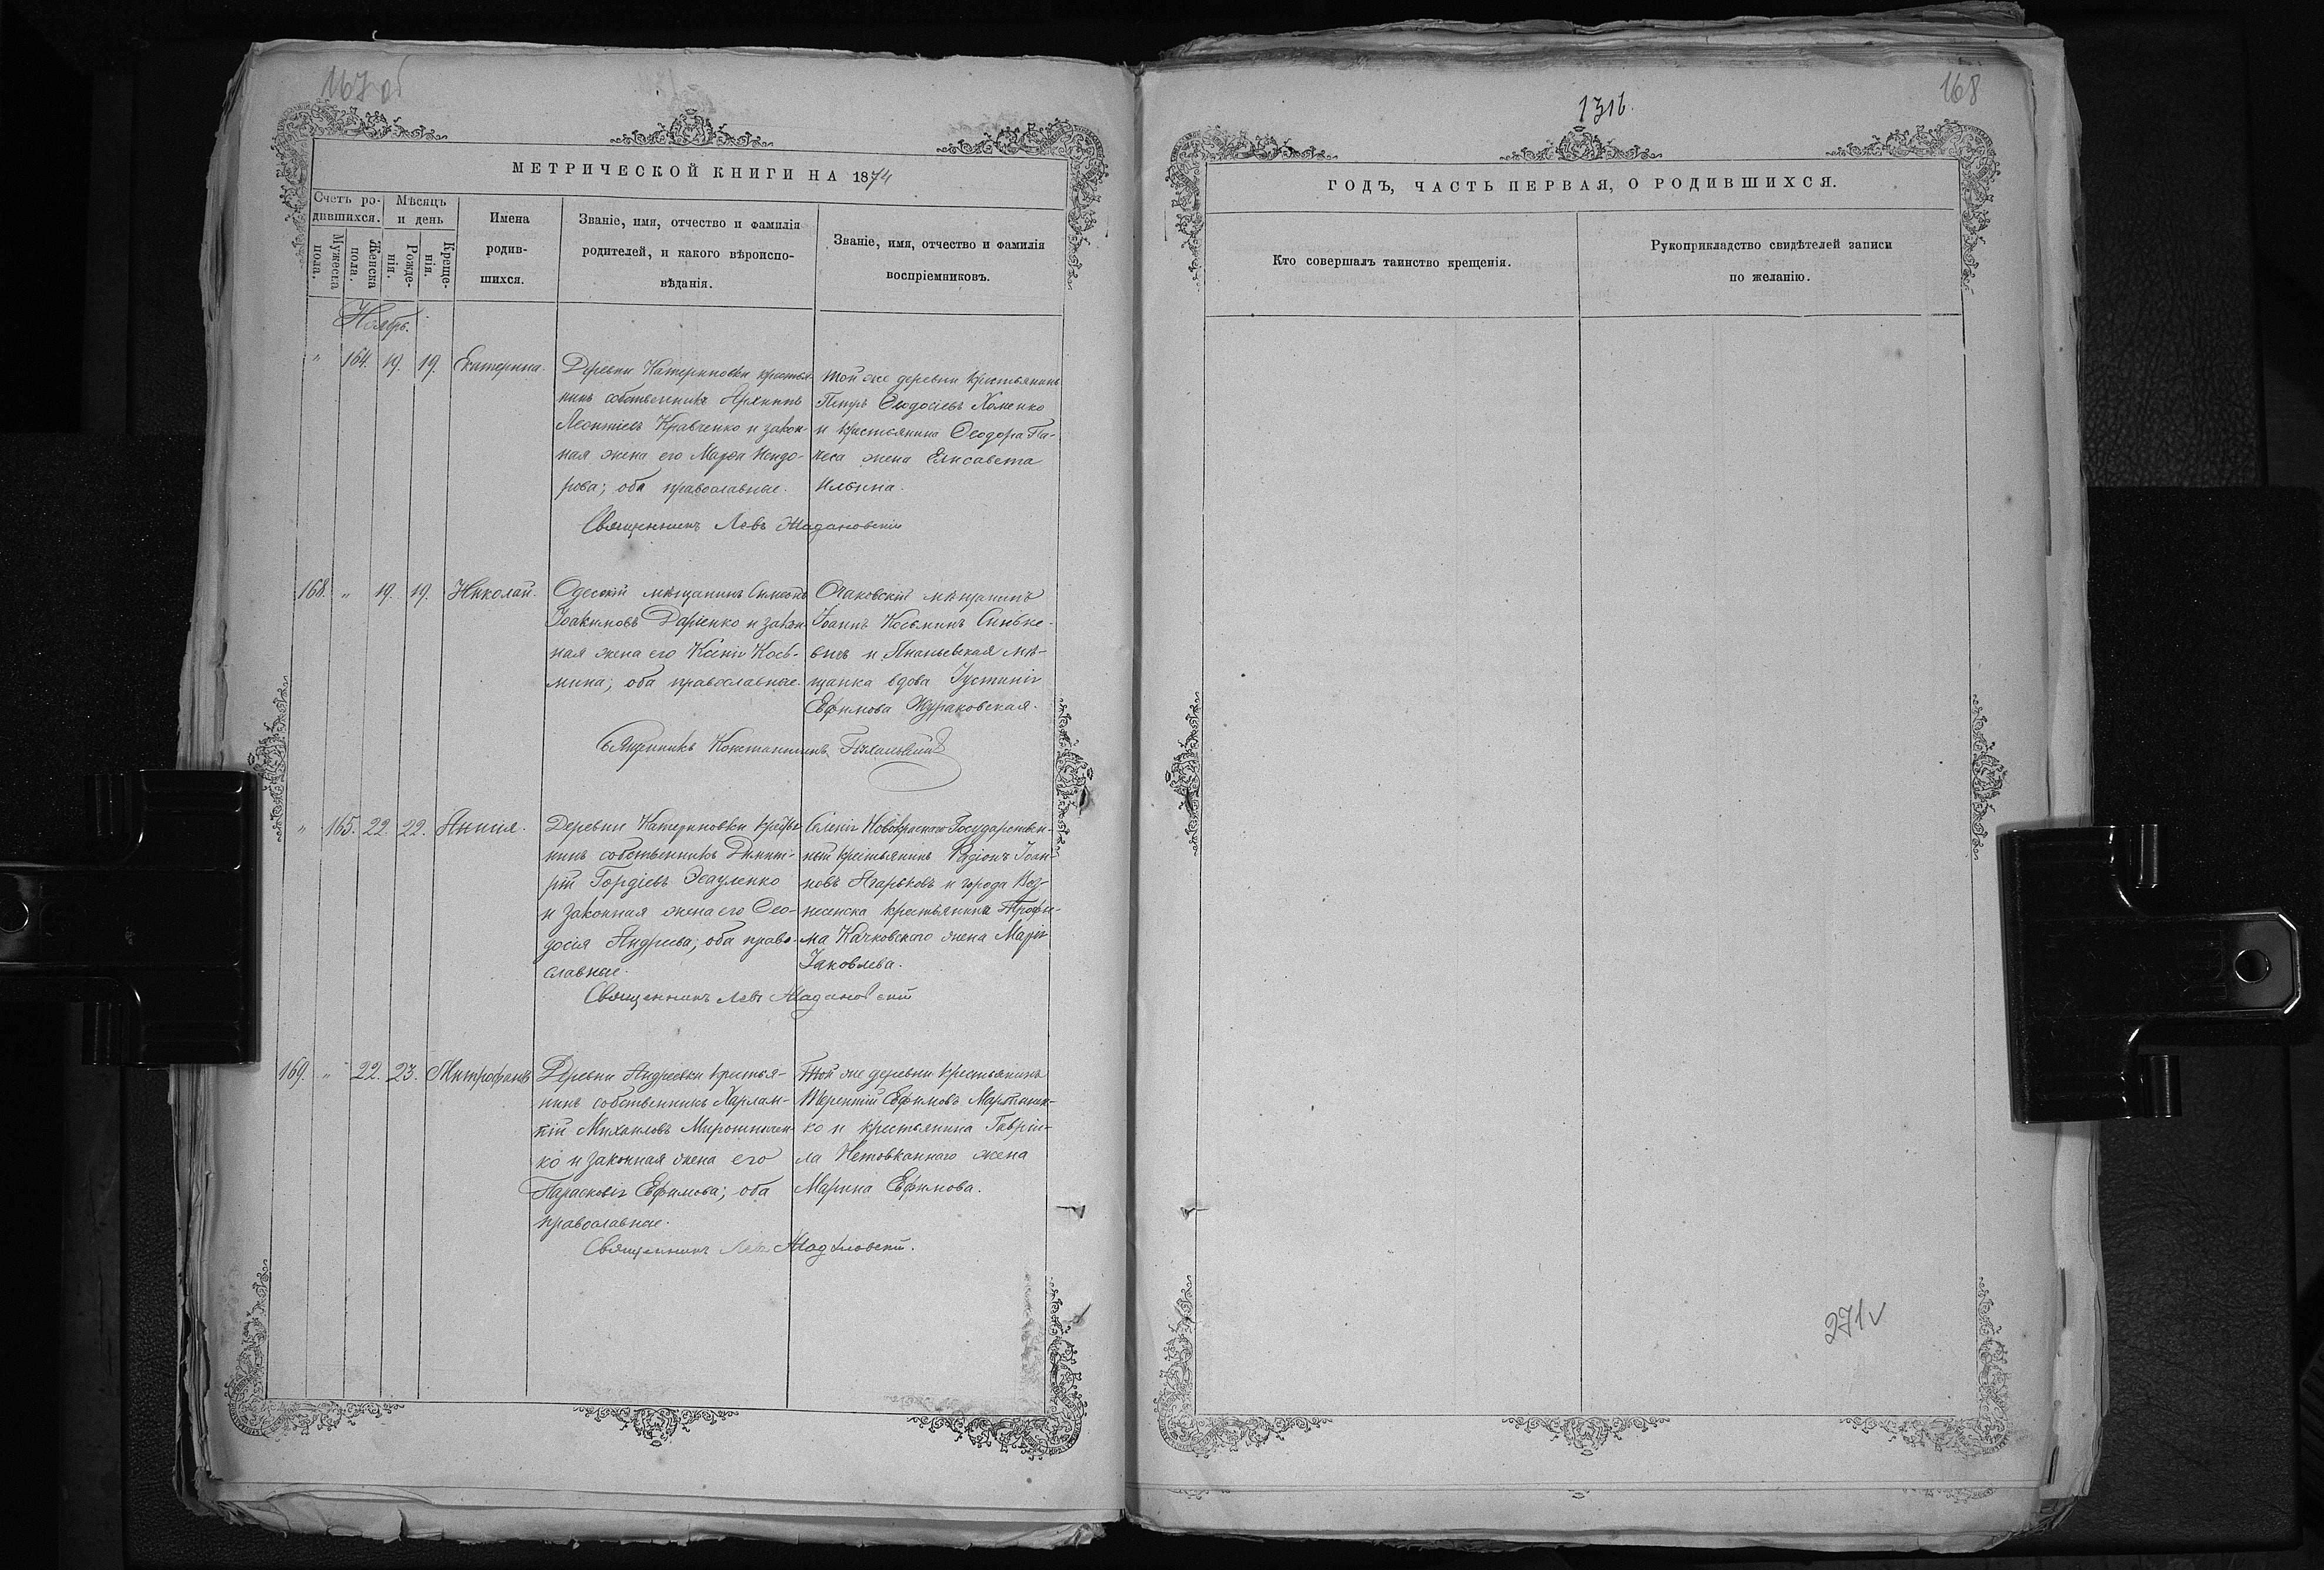 167 об
МЕТРИЧЕСКОЙ КНИГИ НА 1874
Счетъ ро-
дившихся.
Мужеска
пола.
Женска
пола.
Мѣсяцъ
и день
Рожде-
нія.
Креще-
нія.
Имена
родив-
шихся.
Званіе, имя, отчество и фамилія
родителей, и какого вѣроиспо-
вѣданія.
Званіе, имя, отчество и фамилія
воспріемниковъ.
Ноябрь.
" 164. 19. 19. Екатерина.
Деревни Катериновки крестья-
нинъ собственникъ Архипъ
Леонтіевъ Кравченко и закон-
ная жена его Марѳа
рова; оба православные.
той же деревни крестьянинъ
Петръ Ѳеодосіевъ Хоменко
и крестьянина Ѳеодора Па-
жена Елисавета
Ильина.
Священникъ Левъ Жадановскій
168. " 19. 19. Николай.
Одесскій мѣщанинъ Симеонъ
Іоакимовъ Даріенко и закон-
ная жена его Ксенія Кось-
мина; оба православные.
Очаковскій мѣщанинъ
Іоаннъ Косьминъ
вичъ и Ананьевская мѣ-
щанка вдова Іустинія
Ефимова Жураковская.
Священникъ Константинъ
" 165. 22. 22. Анисія.
Деревни Катериновки крестья-
нинъ собственникъ Димит-
рій Гордіевъ Эсауленко
и законная жена его Ѳео-
досія Андреева; оба право-
славные.
Селенія Новокраснаго Государствен-
ный крестьянинъ Родіонъ Іоан-
новъ Агарьковъ и города Воз-
несенска крестьянина Трофи-
ма Качковскаго жена Марія
Іаковлева.
Священникъ Левъ Жадановскій
169. " 22. 23. Митрофанъ
Деревни Андреевки крестья-
нинъ собственникъ Харлам-
пій Михаиловъ Мирошничен-
ко и законная жена его
Параскевія Ефимова; оба
православные.
Той же деревни крестьянинъ
Терентій Ефимовъ Мартынен-
ко и крестьянина Гавріи-
ла Нетовканнаго жена
Марина Ефимова.
Священникъ Левъ Жадановскій.
168
1316.
ГОДЪ, ЧАСТЬ ПЕРВАЯ, О РОДИВШИХСЯ.
Кто совершалъ таинство крещенія.
Рукоприкладство свидѣтелей записи
по желанію.
271 v